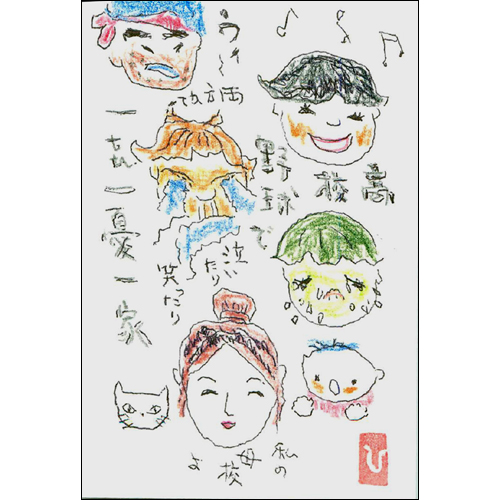 高
校
野球で
泣いたり
笑ったり
一喜一憂一家
私の
母校
よ
ひ